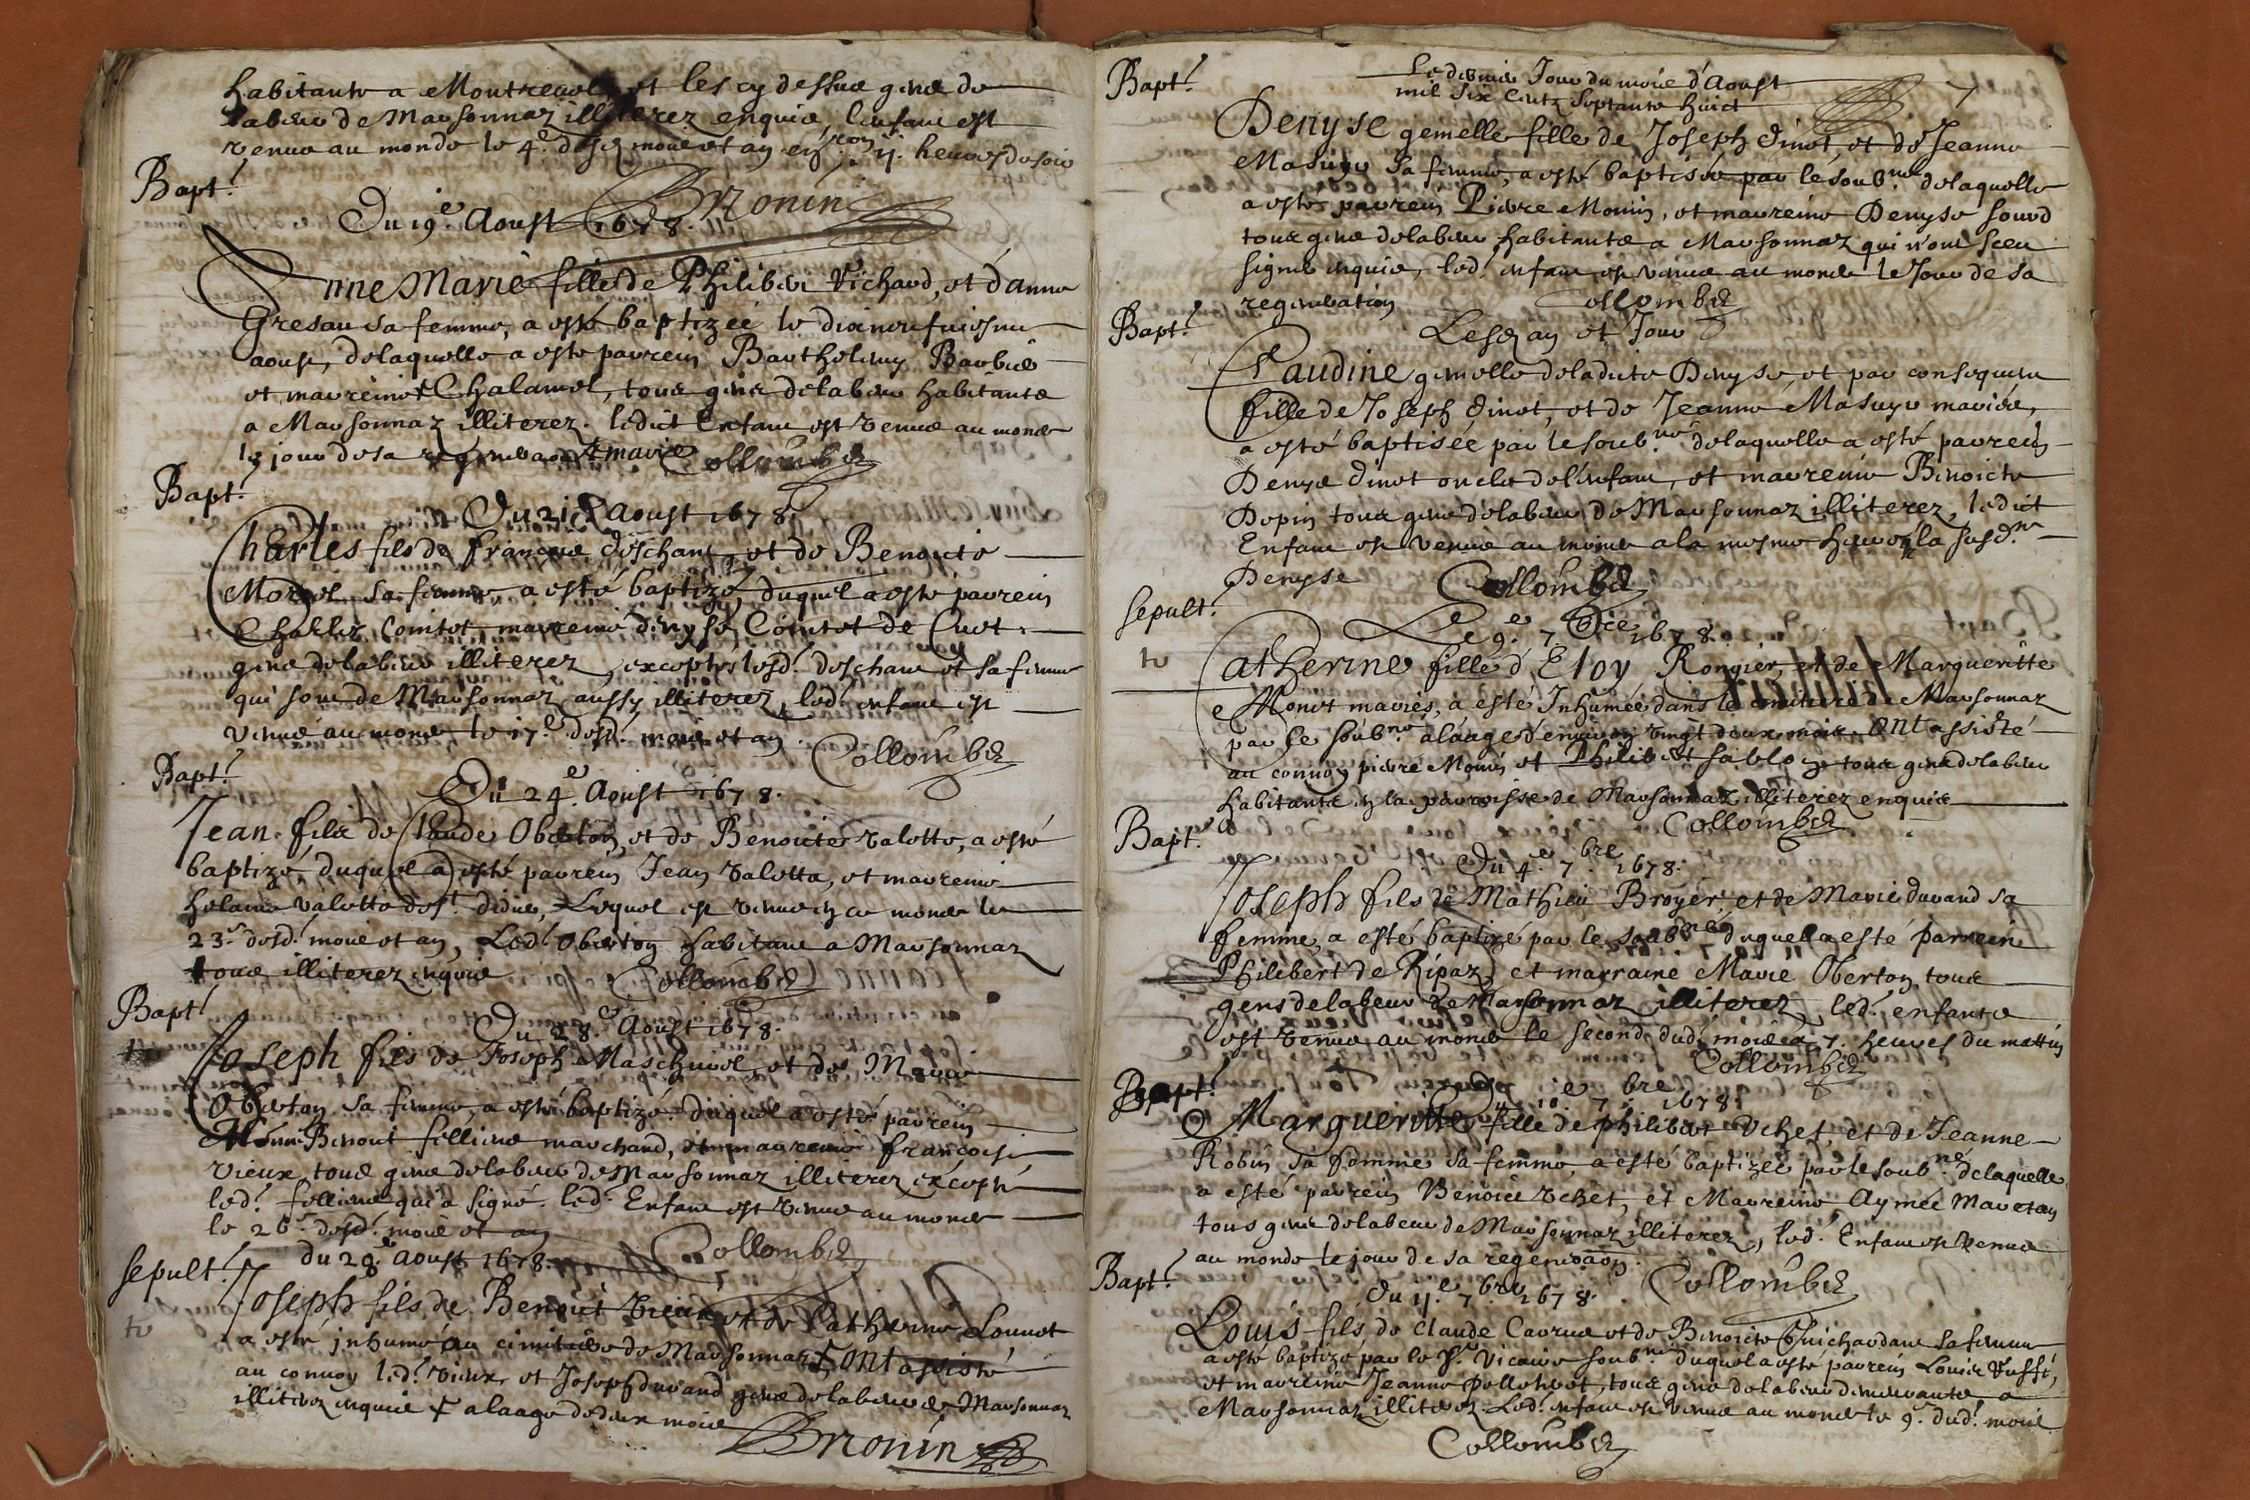 habitants a Montrevel et les cy dessus gens de
labeur de Marsonnaz illiterez enquis, l'enfant est
venue au monde le 4.e desd. mois et an environ 11. heures de soir
Bronin
Bapt.
Du 19.e Aoust 1678.
Anne Marie fille de Philibert Vichard, et d'Anne
Gresau sa femme, a esté baptizée le dixneufviesme
aoust, de laquelle a esté parrein Barthelemy Barbier
et marreine Chalamel, tous gens de labeur habitants
a Marsonnaz illiterez. ledict Enfant est venue au monde
le jour de sa regeneraon + marie Collombet
Bapt.
Du 21.e Aoust 1678.
Charles fils de françois deschamp et de Benoicte
Morel sa femme a esté baptizé, duquel a esté parrein
Charles Comtet marreine denyse Comtet de Cuet
gens de labeur illiterez, exceptes lesd. deschamp et sa femme
qui sont de Marsonnaz aussy illiterez, led. enfant est
venue au monde le 17.e desd. mois et an. Collombet
Bapt.
Du 24.e Aoust 1678.
Jean fils de Claude Oberton, et de Benoicte valotte, a esté
baptizé, duquel a esté parrein Jean valotta, et marreine
helaine valotte, Lequel est venue en ce monde le
23.e desd. mois et an, Led. Oberton habitant a Marsonnaz
tous illiterez enquis Collombet
Bapt.
Du 28.e Aoust 1678.
Joseph fils de Joseph Maschurel et de Marie
Oberton sa femme, a esté baptizé duquel a esté parrein
Benoit felliens marchand, et marreine françoise
vieux tous gens de labeur de Marsonnaz illiterez excepté
led. felliens qui a signé. led. Enfant est venue au monde
le 26.e desd. mois et an
Collombet
sepult.
du 29.e Aoust 1678.
Joseph fils de Benoit vieux et de Catherine Lonnet
a esté inhumé au cimitiere de Marsonnaz + ont assisté
au convoy led. vieux, et Joseph durand gens de labeur de Marsonnaz
illiterez enquis + a laage de deux mois
Bronin
Bapt.
Le dernier Jour du mois d'Aoust
mil six centz septante huict
Denyse gemelle fille de Joseph dinet, et de Jeanne
Masuyr sa femme, a esté baptisée par le soub.né de laquelle
a esté parrein Pierre Monin, et marreine Denyse sourd
tous gens de labeur habitants a Marsonnaz qui n'ont sceu
signer enquis, led. enfant est venue au monde le Jour de sa
regeneration Collombet
Bapt.
Lesd. an et Jour
Claudine gemelle de ladicte Denyse, et par consequent
fille de Joseph dinet, et de Jeanne Masuyr mariés,
a esté baptisée par le soub.né de laquelle a esté parrein
Denys dinet oncle de l'enfant, et marreine Benoicte
Depin tous gens de labeur de Marsonnaz illiterez, ledict
Enfant est venue au monde a la mesme heure la susd.te
Denyse Collombet
sepult.
Le 9.e 7bre 1678.
Catherine fille d'Eloy Rongier, et de Margueritte
Monet mariés, a esté Inhumée dans le cimitiere de Marsonnaz
par le soub.né a laage d'environ vingt deux mois. Ont assisté
au convoy pierre Monin et Philibert sablo tous gens de labeur
habitants en la parroisse de Marsonnaz illiterez enquis
Collombet
Bapt.
Du 4.e 7.bre 1678.
Joseph fils de Mathieu Broyer, et de Marie durand sa
femme, a esté baptizé par le soub.né duquel a esté parrein
Philibert de Ripaz, et marraine Marie Oberton tous
gens de labeur de Marsonnaz illiterez, led. enfant
est venue au monde le second dud. mois a 7. heures du mattin
Collombet
Bapt.
Du 10.e 7.bre 1678.
Margueritte fille de philibert vchet et de Jeanne
Robin sa femme sa femme, a esté baptizée par le soub.né de laquelle
a esté parrein Benoict vchet, et Marreine Aymée Maretan
tous gens de labeur de Marsonnaz illiterez, led. Enfant est venue
au monde le jour de sa regeneraon. Collombet
Bapt.
Du 11.e 7.bre 1678.
Louis fils de Claude Carrue et de Benoicte Guichardan sa femme
a esté baptizé par le S.r Vicaire soub.né duquel a esté parrein Louis
et marreine Jeanne, tous gens de labeur demeurants a
Marsonnaz illiterez. Led. enfant est venue au monde le 9.e dud. mois
Collombet